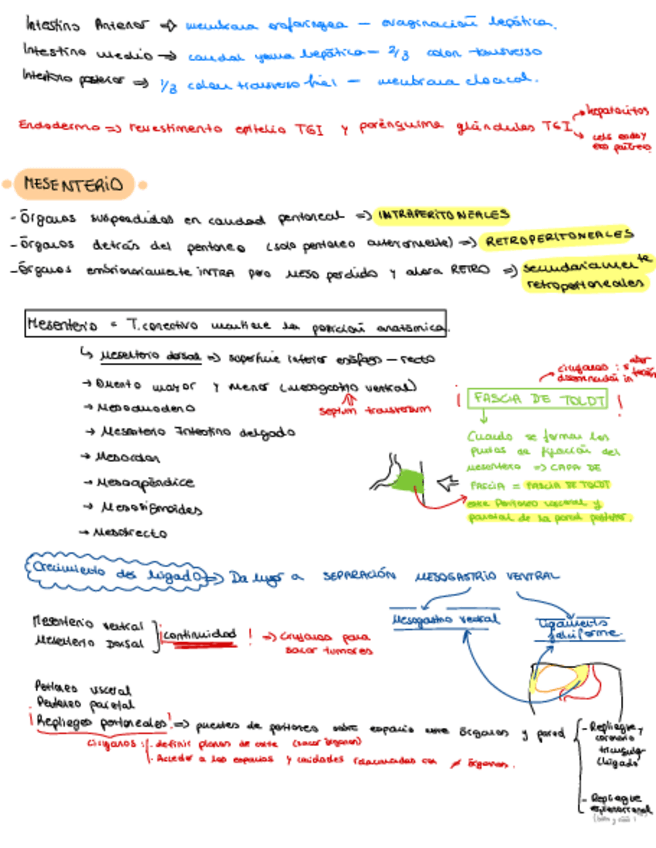 Intestino Anterior => membrana orofaríngea - evaginación hepática.
Intestino medio => caudal yema hepática - 2/3 colon transverso
Intestino posterior => 1/3 colon transverso final - membrana cloacal.
Endodermo => revestimento epitelio TGI y parénquima glándulas TGI
hepatocitos
cels endo y
exo páncreas
MESENTERIO
- Órganos suspendidos en cavidad peritoneal => INTRAPERITONEALES
- Órganos detrás del peritoneo (solo peritoneo anteriormente) => RETROPERITONEALES
- Órganos embrionariamente INTRA pero meso perdido y ahora RETRO => secundariamente
retroperitoneales
Mesenterio = T. conectivo mantiene la posición anatómica.
↳ Mesenterio dorsal => superficie inferior esófago - recto
→ Omento mayor y menor (mesogastrio ventral)
septum transversum
→ Mesoduodeno
→ Mesenterio Intestino delgado
→ Mesocolon
→ Mesoapéndice
→ Mesosigmoides
→ Mesorrecto
cirujanos :
¡ FASCIA DE TOLDT !
Cuando se forman los
puntos de fijación del
mesenterio => CAPA DE
FASCIA = FASCIA DE TOLDT
entre Peritoneo visceral y
parietal de la pared posterior.
Crecimiento del hígado => Da lugar a SEPARACIÓN MESOGASTRIO VENTRAL
Mesogastrio ventral
Ligamento
falciforme
Mesenterio ventral
Mesenterio Dorsal
¡continuidad! => Cirujanos para
sacar tumores
Peritoneo visceral
Peritoneo parietal
¡Repliegues peritoneales! => puentes de peritoneo entre espacio entre órganos y pared
cirujanos : - definir planos de corte (sacar órganos)
- Acceder a los espacios y cavidades relacionadas con órganos.
- Repliegue y
coronario
triangular
(hígado)
- Repliegue
esplenorrenal